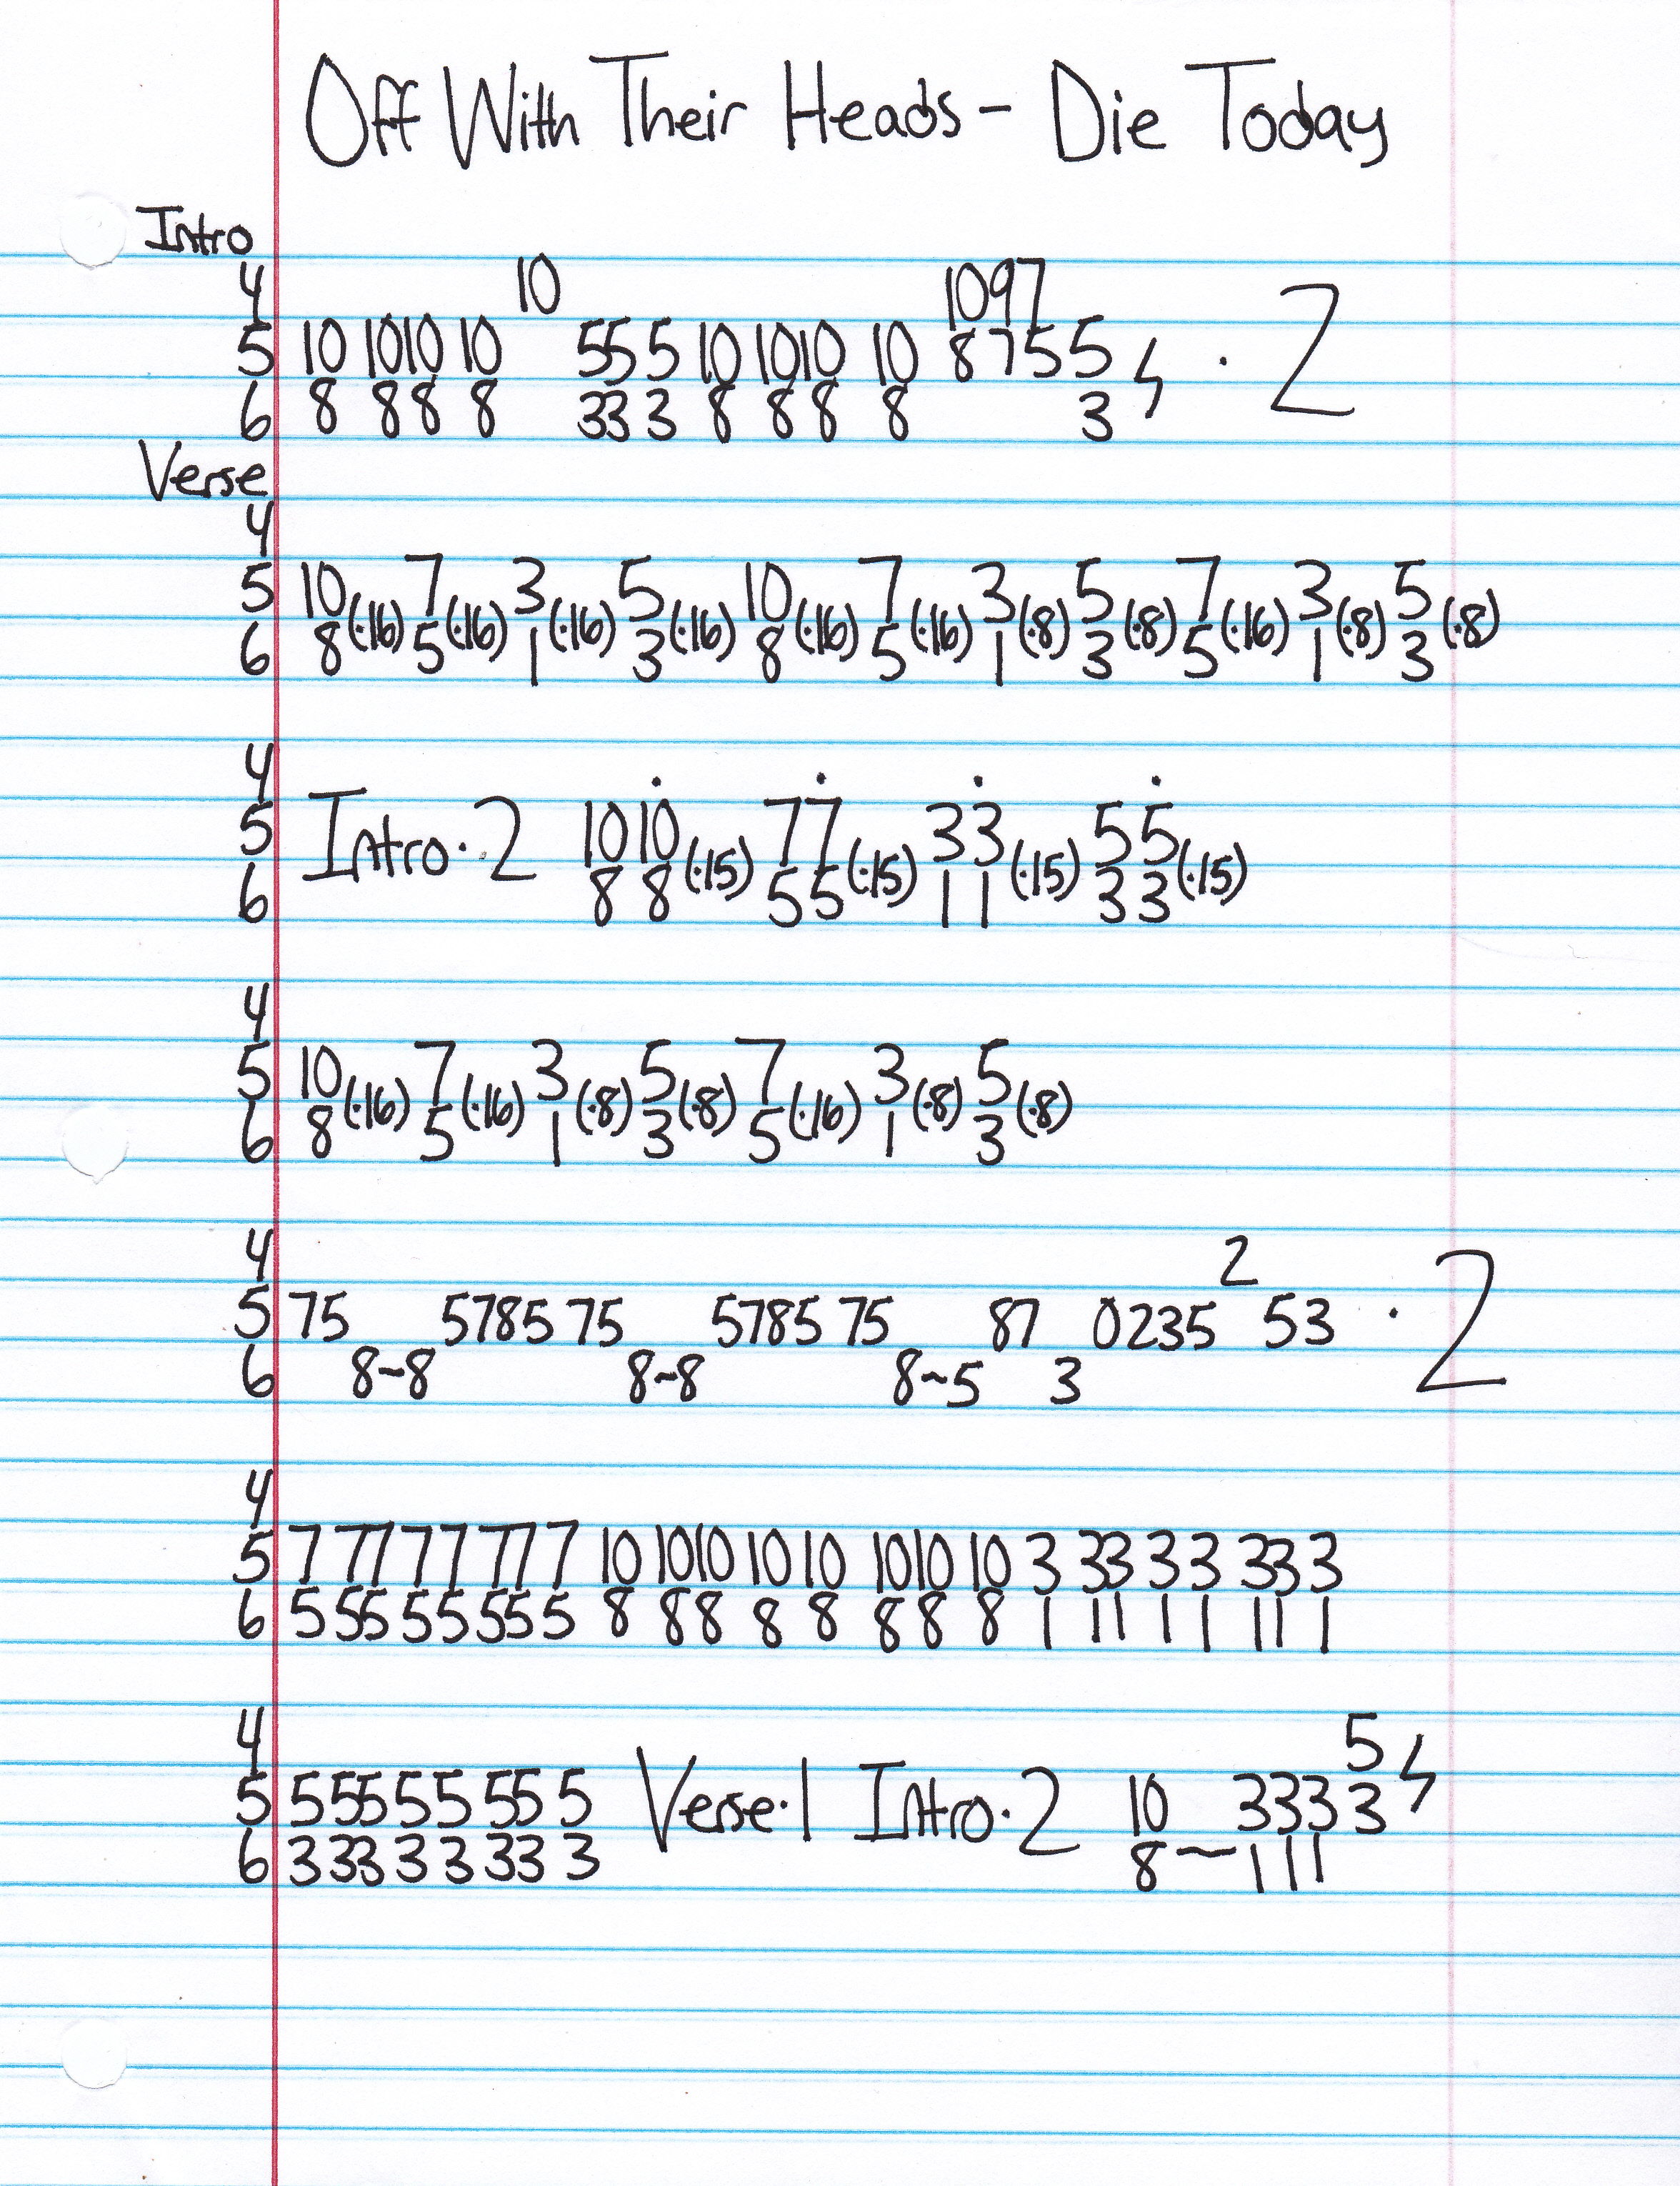 Off With Their Heads - Die Today
Intro
4 10 10 9 7
5 10 10 10 10 5 5 5 10 10 10 10 8 7 5 5 · 2
6 8 8 8 8 3 3 3 8 8 8 8 3
Verse
4
5 10 7 3 5 10 7 3 5 7 3 5
(·16) (·16) (·16) (·16) (·16) (·16) (·8) (·8) (·16) (·8) (·8)
6 8 5 1 3 8 5 1 3 5 1 3
4
5 Intro · 2 10 10 7 7 3 3 5 5
(·15) (·15) (·15) (·15)
6 8 8 5 5 1 1 3 3
4
5 10 7 3 5 7 3 5
(·16) (·16) (·8) (·8) (·16) (·8) (·8)
6 8 5 1 3 5 1 3
4 2
5 7 5 5 7 8 5 7 5 5 7 8 5 7 5 8 7 0 2 3 5 5 3 · 2
6 8~8 8~8 8~5 3
4
5 7 7 7 7 7 7 7 7 10 10 10 10 10 10 10 10 3 3 3 3 3 3 3 3
6 5 5 5 5 5 5 5 5 8 8 8 8 8 8 8 8 1 1 1 1 1 1 1 1
4 5
5 5 5 5 5 5 5 5 5 Verse · 1 Intro · 2 10 3 3 3 3
6 3 3 3 3 3 3 3 3 8~1 1 1